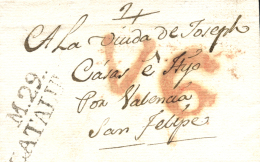 A La Viuda de Joseph
Casas è Hijo
Por Valencia
San Felipe
M.29